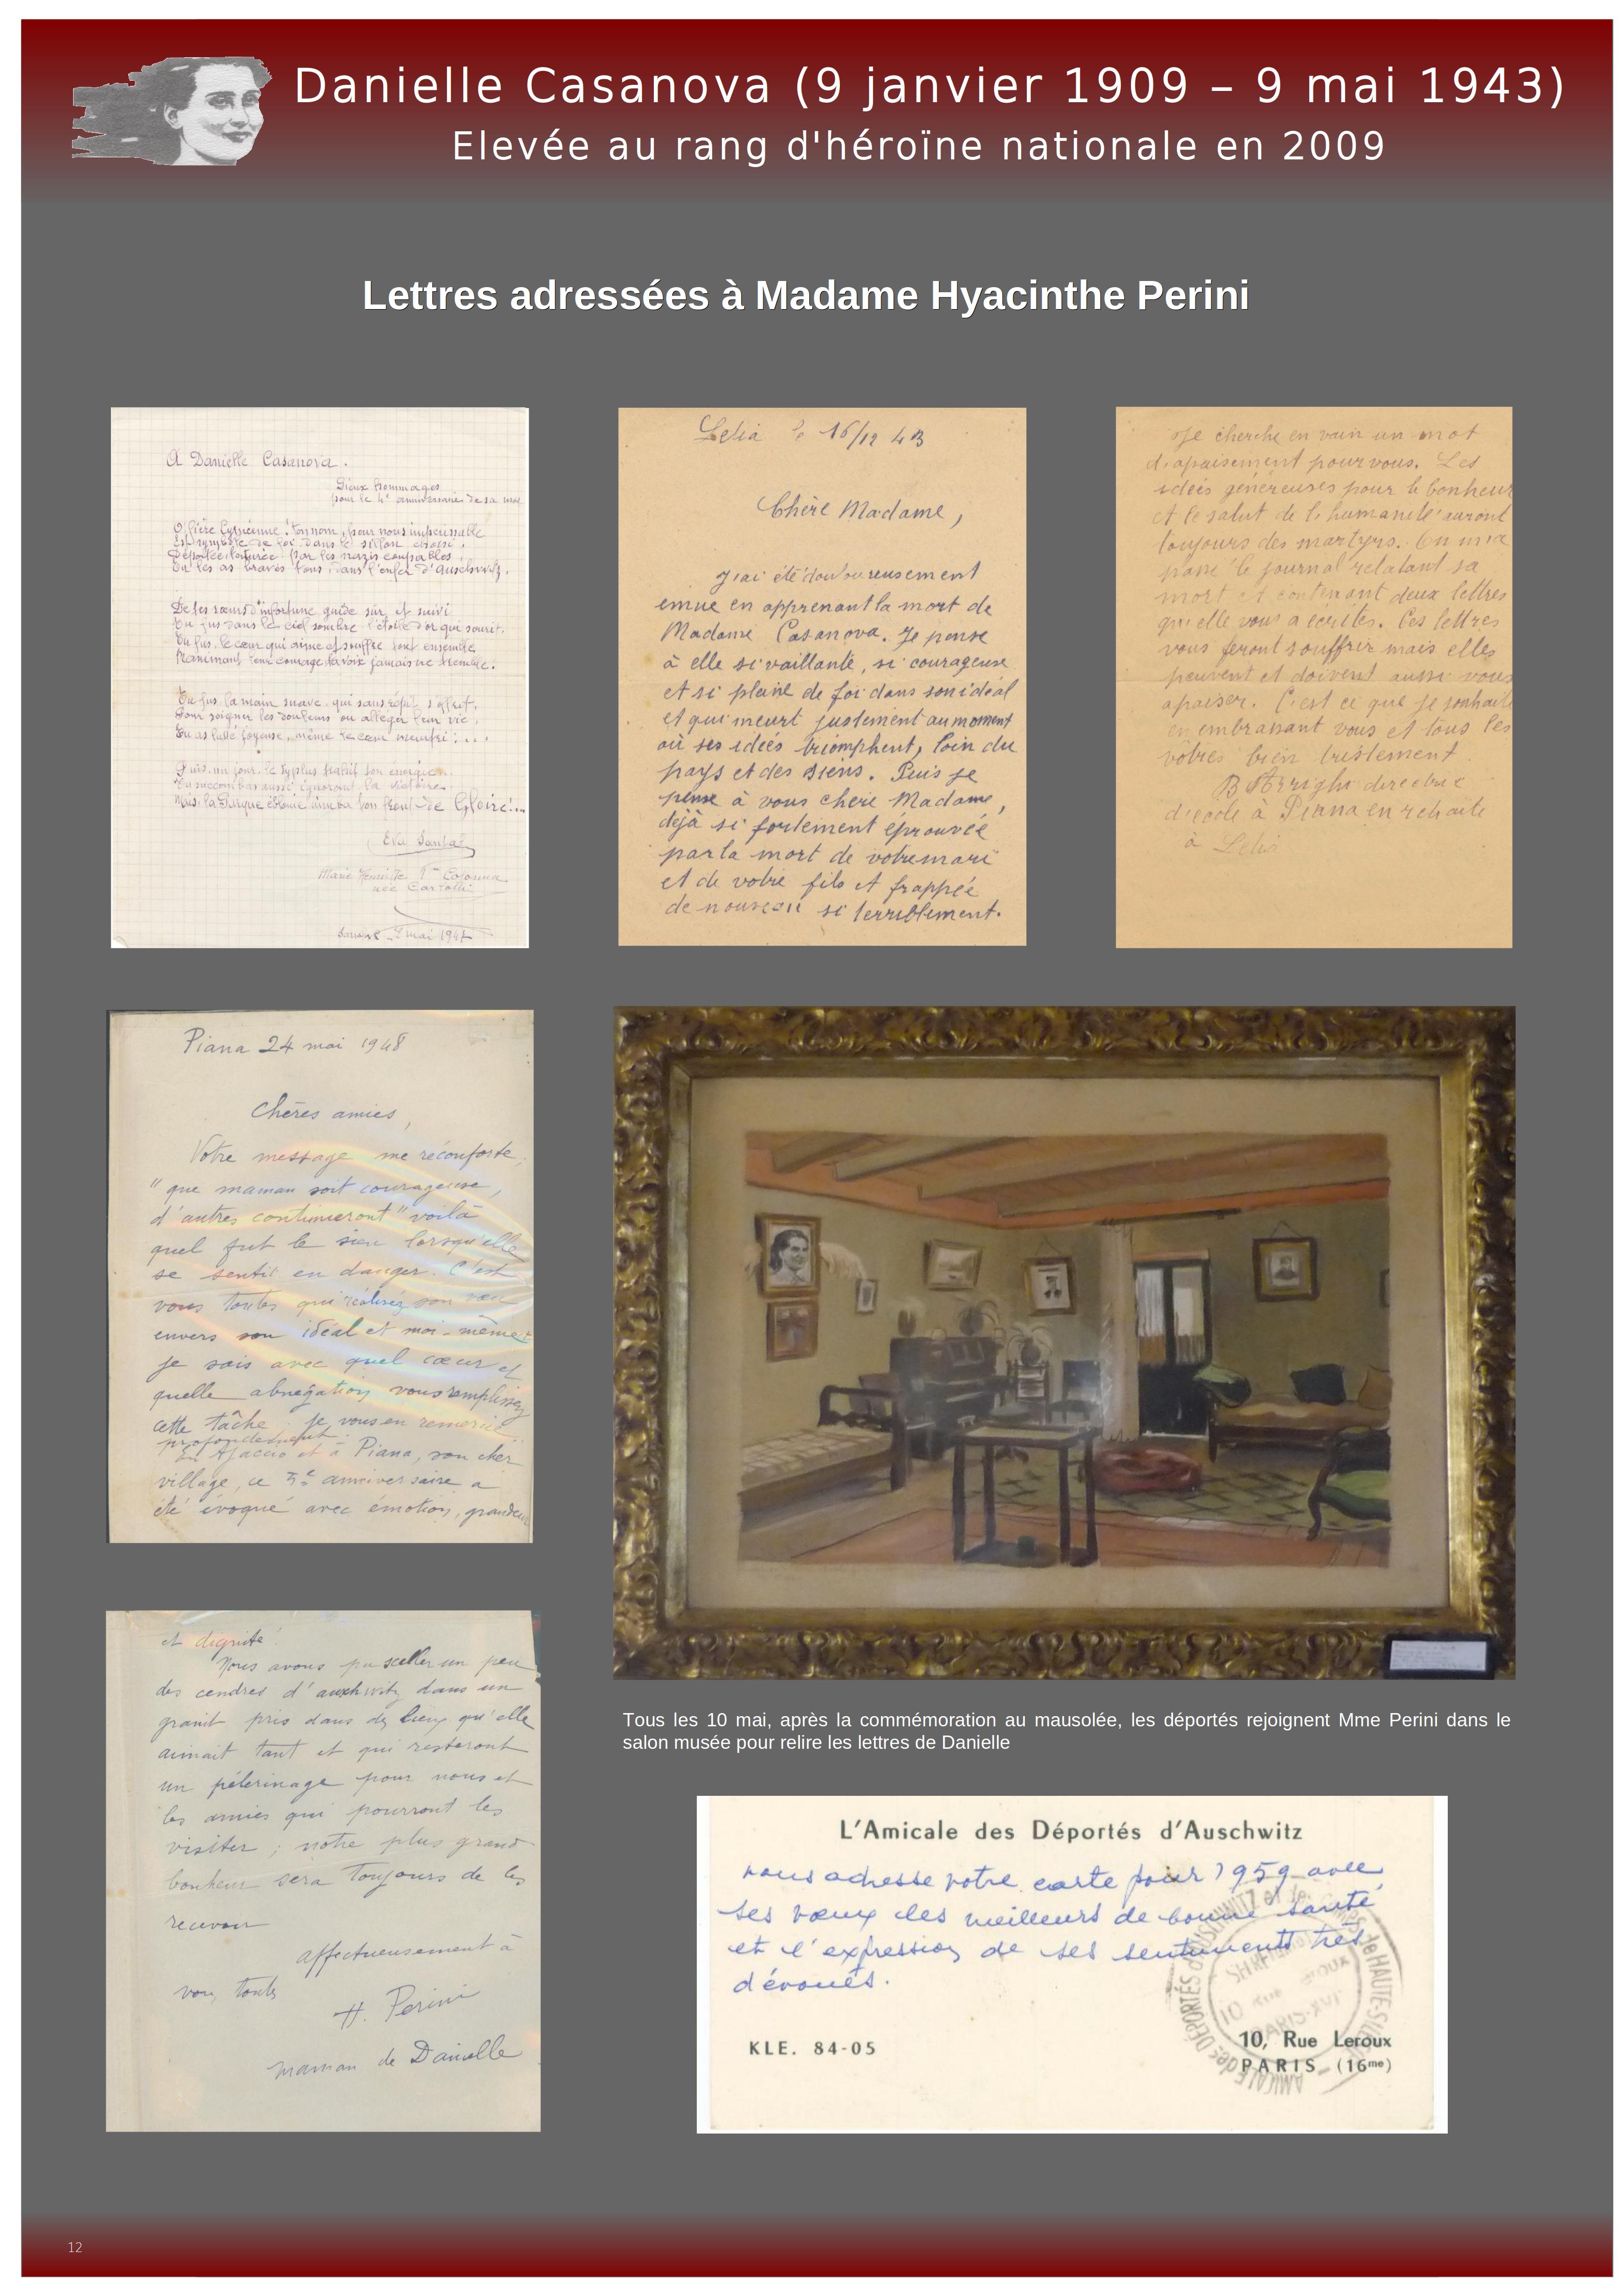 Danielle Casanova (9 janvier 1909 – 9 mai 1943)
Elevée au rang d'héroïne nationale en 2009
Lettres adressées à Madame Hyacinthe Perini
A Danielle Casanova.
Pieux hommages
pour le 4e anniversaire de sa mort
O fière Cyrnéenne ! ton nom, pour nous impérissable
Est symbole de foi dans le sillon choisi.
Déportée, torturée par les nazis coupables
Tu les as bravés tous, dans l'enfer d'Auschwitz.
De tes sœurs d'infortune guide sûr et suivi
Tu fus dans le ciel sombre l'étoile d'or qui sourit.
Tu fus le cœur qui aime et souffre tout ensemble
Ranimant leur courage, ta voix jamais ne tremble.
Tu fus la main suave qui sans répit s'offrit
Pour soigner les douleurs ou alléger leur vie,
Tu as lutté joyeuse, même le cœur meurtri ....
Puis un jour, le typhus trahit ton énergie
Tu succombas aussi ignorant la victoire
Mais la Parque éblouie nimba ton front de Gloire !...
Marie Henriette Colonna
née Carlotti
2 mai 1947
Letia le 16/12 43
Chère Madame,
J'ai été douloureusement
émue en apprenant la mort de
Madame Casanova. Je pense
à elle si vaillante, si courageuse
et si pleine de foi dans son idéal
et qui meurt justement au moment
où ses idées triomphent, loin du
pays et des siens. Puis je
pense à vous chère Madame,
déjà si fortement éprouvée
par la mort de votre mari
et de votre fils et frappée
de nouveau si terriblement.
Je cherche en vain un mot
d'apaisement pour vous. Les
idées généreuses pour le bonheur
et le salut de l'humanité auront
toujours des martyrs. On m'a
passé le journal relatant sa
mort et contenant deux lettres
qu'elle vous a écrites. Ces lettres
vous feront souffrir mais elles
peuvent et doivent aussi vous
apaiser. C'est ce que je souhaite
en embrassant vous et tous les
vôtres bien tristement.
B Arrighi directrice
d'école à Piana en retraite
à Letia
Piana 24 mai 1948
Chères amies,
Votre message me réconforte,
"que maman soit courageuse,
d'autres continueront" voilà
quel fut le sien lorsqu'elle
se sentit en danger. C'est
vous toutes qui réalisez son vœu
envers son idéal et moi-même
je sais avec quel cœur et
quelle abnégation vous remplissez
cette tâche. Je vous en remercie
profondément.
En Ajaccio et à Piana, son cher
village, ce 5e anniversaire a
été évoqué avec émotion, grandeur
et dignité.
Nous avons pu sceller un peu
des cendres d'auschwitz dans un
granit pris dans des lieux qu'elle
aimait tant et qui resteront
un pélerinage pour nous et
les amies qui pourront les
visiter ; notre plus grand
bonheur sera toujours de les
recevoir
affectueusement à
vous toutes
H. Perini
maman de Danielle
Tous les 10 mai, après la commémoration au mausolée, les déportés rejoignent Mme Perini dans le
salon musée pour relire les lettres de Danielle
L'Amicale des Déportés d'Auschwitz
vous adresse votre carte pour 1959 avec
ses vœux les meilleurs de bonne santé
et l'expression de ses sentiments très
dévoués.
KLE. 84-05
10, Rue Leroux
PARIS (16me)
AMICALE des DÉPORTÉS d'AUSCHWITZ et de HAUTE-SILÉSIE
10 Rue Leroux
PARIS-XVI
12